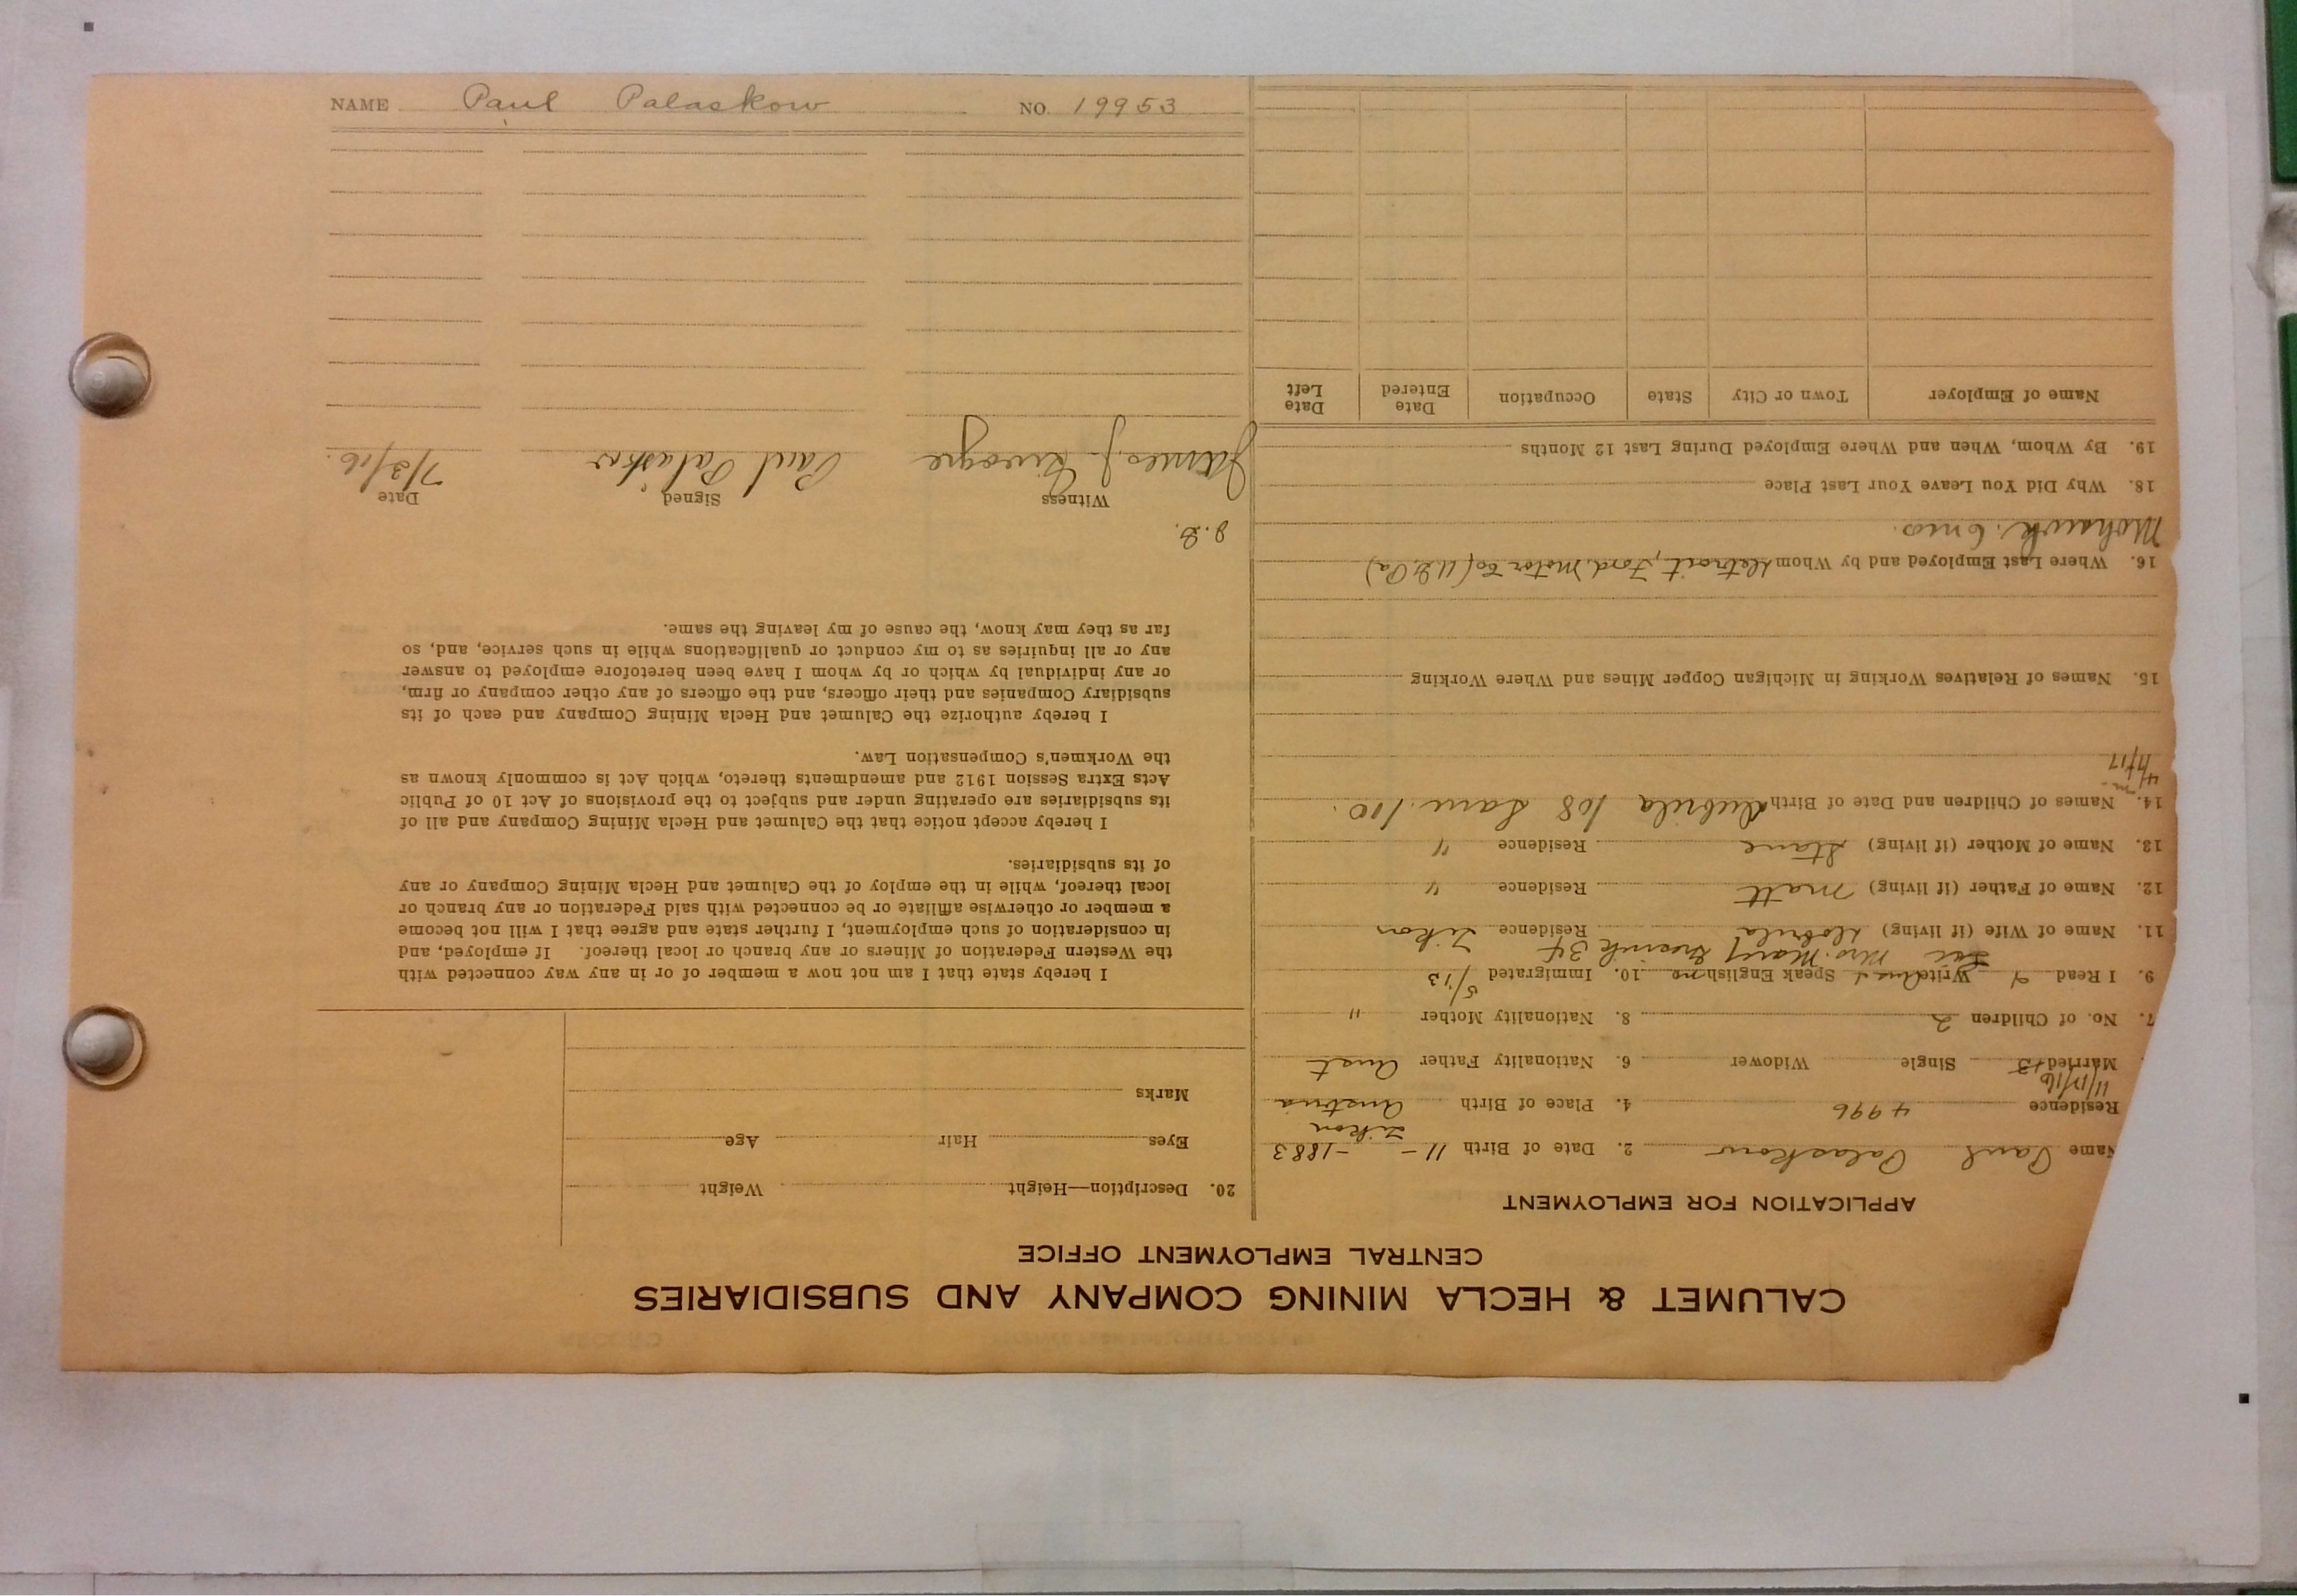 CALUMET & HECLA MINING COMPANY AND SUBSIDIARIES
CENTRAL EMPLOYMENT OFFICE
APPLICATION FOR EMPLOYMENT
Name Paul Palaskow 2. Date of Birth 11 - - 1883
Residence 4996 4. Place of Birth Austria
11/17/16
Married Single Widower 6. Nationality Father Aust
7. No. of Children 2 8. Nationality Mother "
9. I Read Write Speak English no 10. Immigrated 5/13
Mrs.
11. Name of Wife (if living) Residence
12. Name of Father (if living) Matt Residence "
13. Name of Mother (if living) Residence "
14. Names of Children and Date of Birth 108
4/1/17
15. Names of Relatives Working in Michigan Copper Mines and Where Working
16. Where Last Employed and by Whom Detroit, Ford Motor Co
Mohawk
18. Why Did You Leave Your Last Place
19. By Whom, When and Where Employed During Last 12 Months
Name of Employer Town or City State Occupation Date Entered Date Left
20. Description—Height Weight
Eyes Hair Age
Marks
I hereby state that I am not now a member of or in any way connected with
the Western Federation of Miners or any branch or local thereof. If employed, and
in consideration of such employment, I further state and agree that I will not become
a member or otherwise affiliate or be connected with said Federation or any branch or
local thereof, while in the employ of the Calumet and Hecla Mining Company or any
of its subsidiaries.
I hereby accept notice that the Calumet and Hecla Mining Company and all of
its subsidiaries are operating under and subject to the provisions of Act 10 of Public
Acts Extra Session 1912 and amendments thereto, which Act is commonly known as
the Workmen's Compensation Law.
I hereby authorize the Calumet and Hecla Mining Company and each of its
subsidiary Companies and their officers, and the officers of any other company or firm,
or any individual by which or by whom I have been heretofore employed to answer
any or all inquiries as to my conduct or qualifications while in such service, and, so
far as they may know, the cause of my leaving the same.
Witness Signed Date
James J. Paul Palaskow 7/3/16.
NAME Paul Palaskow NO. 19953